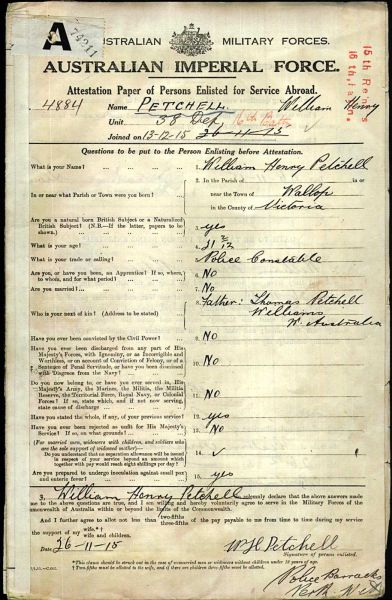 A
74211
AUSTRALIAN MILITARY FORCES.
AUSTRALIAN IMPERIAL FORCE.
15th Rein
16th Battn.
Attestation Paper of Persons Enlisted for Service Abroad.
4884 Name PETCHELL. William Henry
Unit 38 Dep 16th Battn
Joined on 13-12-15 26-11-15
Questions to be put to the Person Enlisting before Attestation.
What is your Name? 1. William Henry Petchell
In or near what Parish or Town were you born? 2. In the Parish of
near the Town of Wallop
in the County of Victoria
Are you a natural born British Subject or a Naturalized British Subject? (N.B.—If the latter, papers to be shown). 3. yes
What is your age? 4. 31
What is your trade or calling? 5. Police Constable
Are you, or have you been, an Apprentice? If so, where, to whom, and for what period? 6. No
Are you married? 7. No
Who is your next of kin? (Address to be stated) 8. Father: Thomas Petchell
Williams
W. Australia
Have you ever been convicted by the Civil Power? 9. No
Have you ever been discharged from any part of His Majesty's Forces, with Ignominy, or as Incorrigible and Worthless, or on account of Conviction of Felony, or of a Sentence of Penal Servitude, or have you been dismissed with Disgrace from the Navy? 10. No
Do you now belong to, or have you ever served in, His Majesty's Army, the Marines, the Militia, the Militia Reserve, the Territorial Force, Royal Navy, or Colonial Forces? If so, state which, and if not now serving, state cause of discharge 11. No
Have you stated the whole, if any, of your previous service? 12. yes
Have you ever been rejected as unfit for His Majesty's Service? If so, on what grounds? 13. No
(For married men, widowers with children, and soldiers who are the sole support of widowed mother)—
Do you understand that no separation allowance will be issued in respect of your service beyond an amount which together with pay would reach eight shillings per day? 14. ✓
Are you prepared to undergo inoculation against small pox and enteric fever? 15. yes
I, William Henry Petchell solemnly declare that the above answers made
by me to the above questions are true, and I am willing and hereby voluntarily agree to serve in the Military Forces of the
Commonwealth of Australia within or beyond the limits of the Commonwealth.
And I further agree to allot not less than two-fifths three-fifths of the pay payable to me from time to time during my service
the support of my wife.*† and children.
Date 26-11-15
WH Petchell
Signature of person enlisted.
Police Barracks
Perth